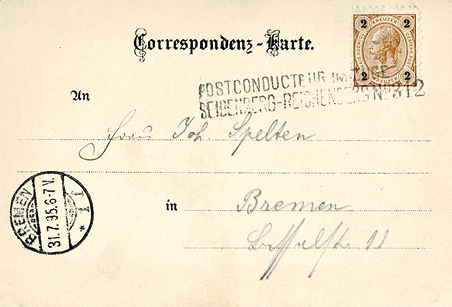 2 KREUZER 2
Correspondenz-Karte.
POSTCONDUCTEUR IM ZUGE
SEIDENBERG-REICHENBERG No 312
An
Herrn Joh. Spelten
in
Bremen
11
BREMEN
31.7.95.6-7 V.
* 1